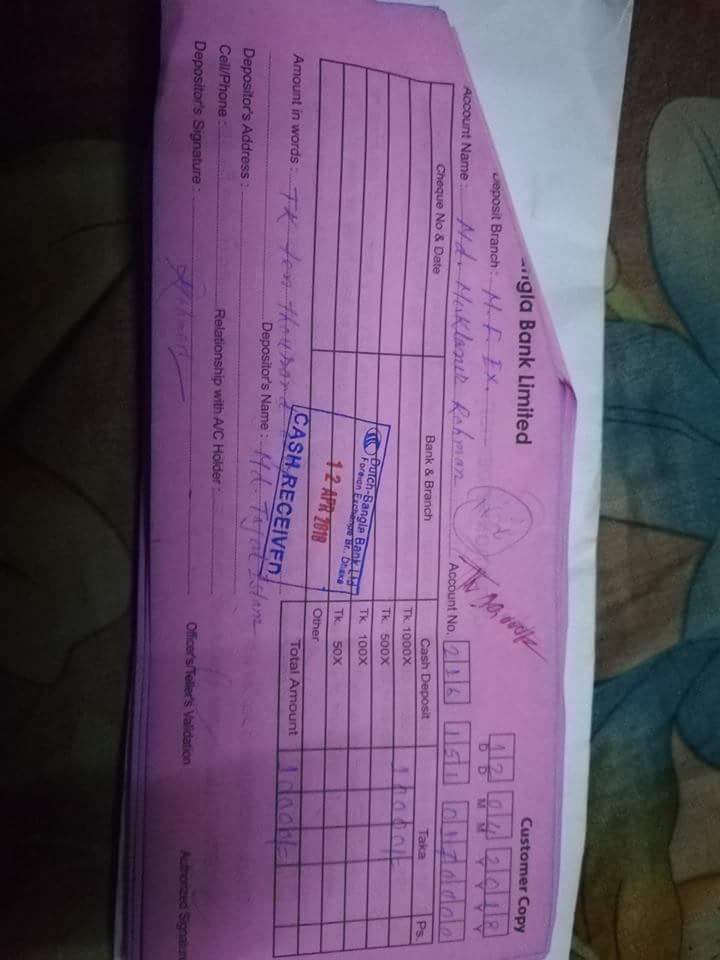 ngla Bank Limited
Customer Copy
Deposit Branch : M.F. Ex.
12 04 2018
D D M M Y Y Y Y
Account Name : Md. Rahman
Account No. 216 151
Cheque No & Date
Bank & Branch
Cash Deposit
Taka
Ps.
Tk. 1000X
10000/-
Tk. 500X
Tk. 100X
Tk. 50X
Other
Total Amount
10000/-
Dutch-Bangla Bank Ltd
Foreign Exchange Br., Dhaka
12 APR 2018
CASH RECEIVED
Amount in words : TK ten thousand
Depositor's Name : Md.
Depositor's Address :
Cell/Phone :
Relationship with A/C Holder :
Depositor's Signature :
Officer's/Teller's Validation
Authorized Signature